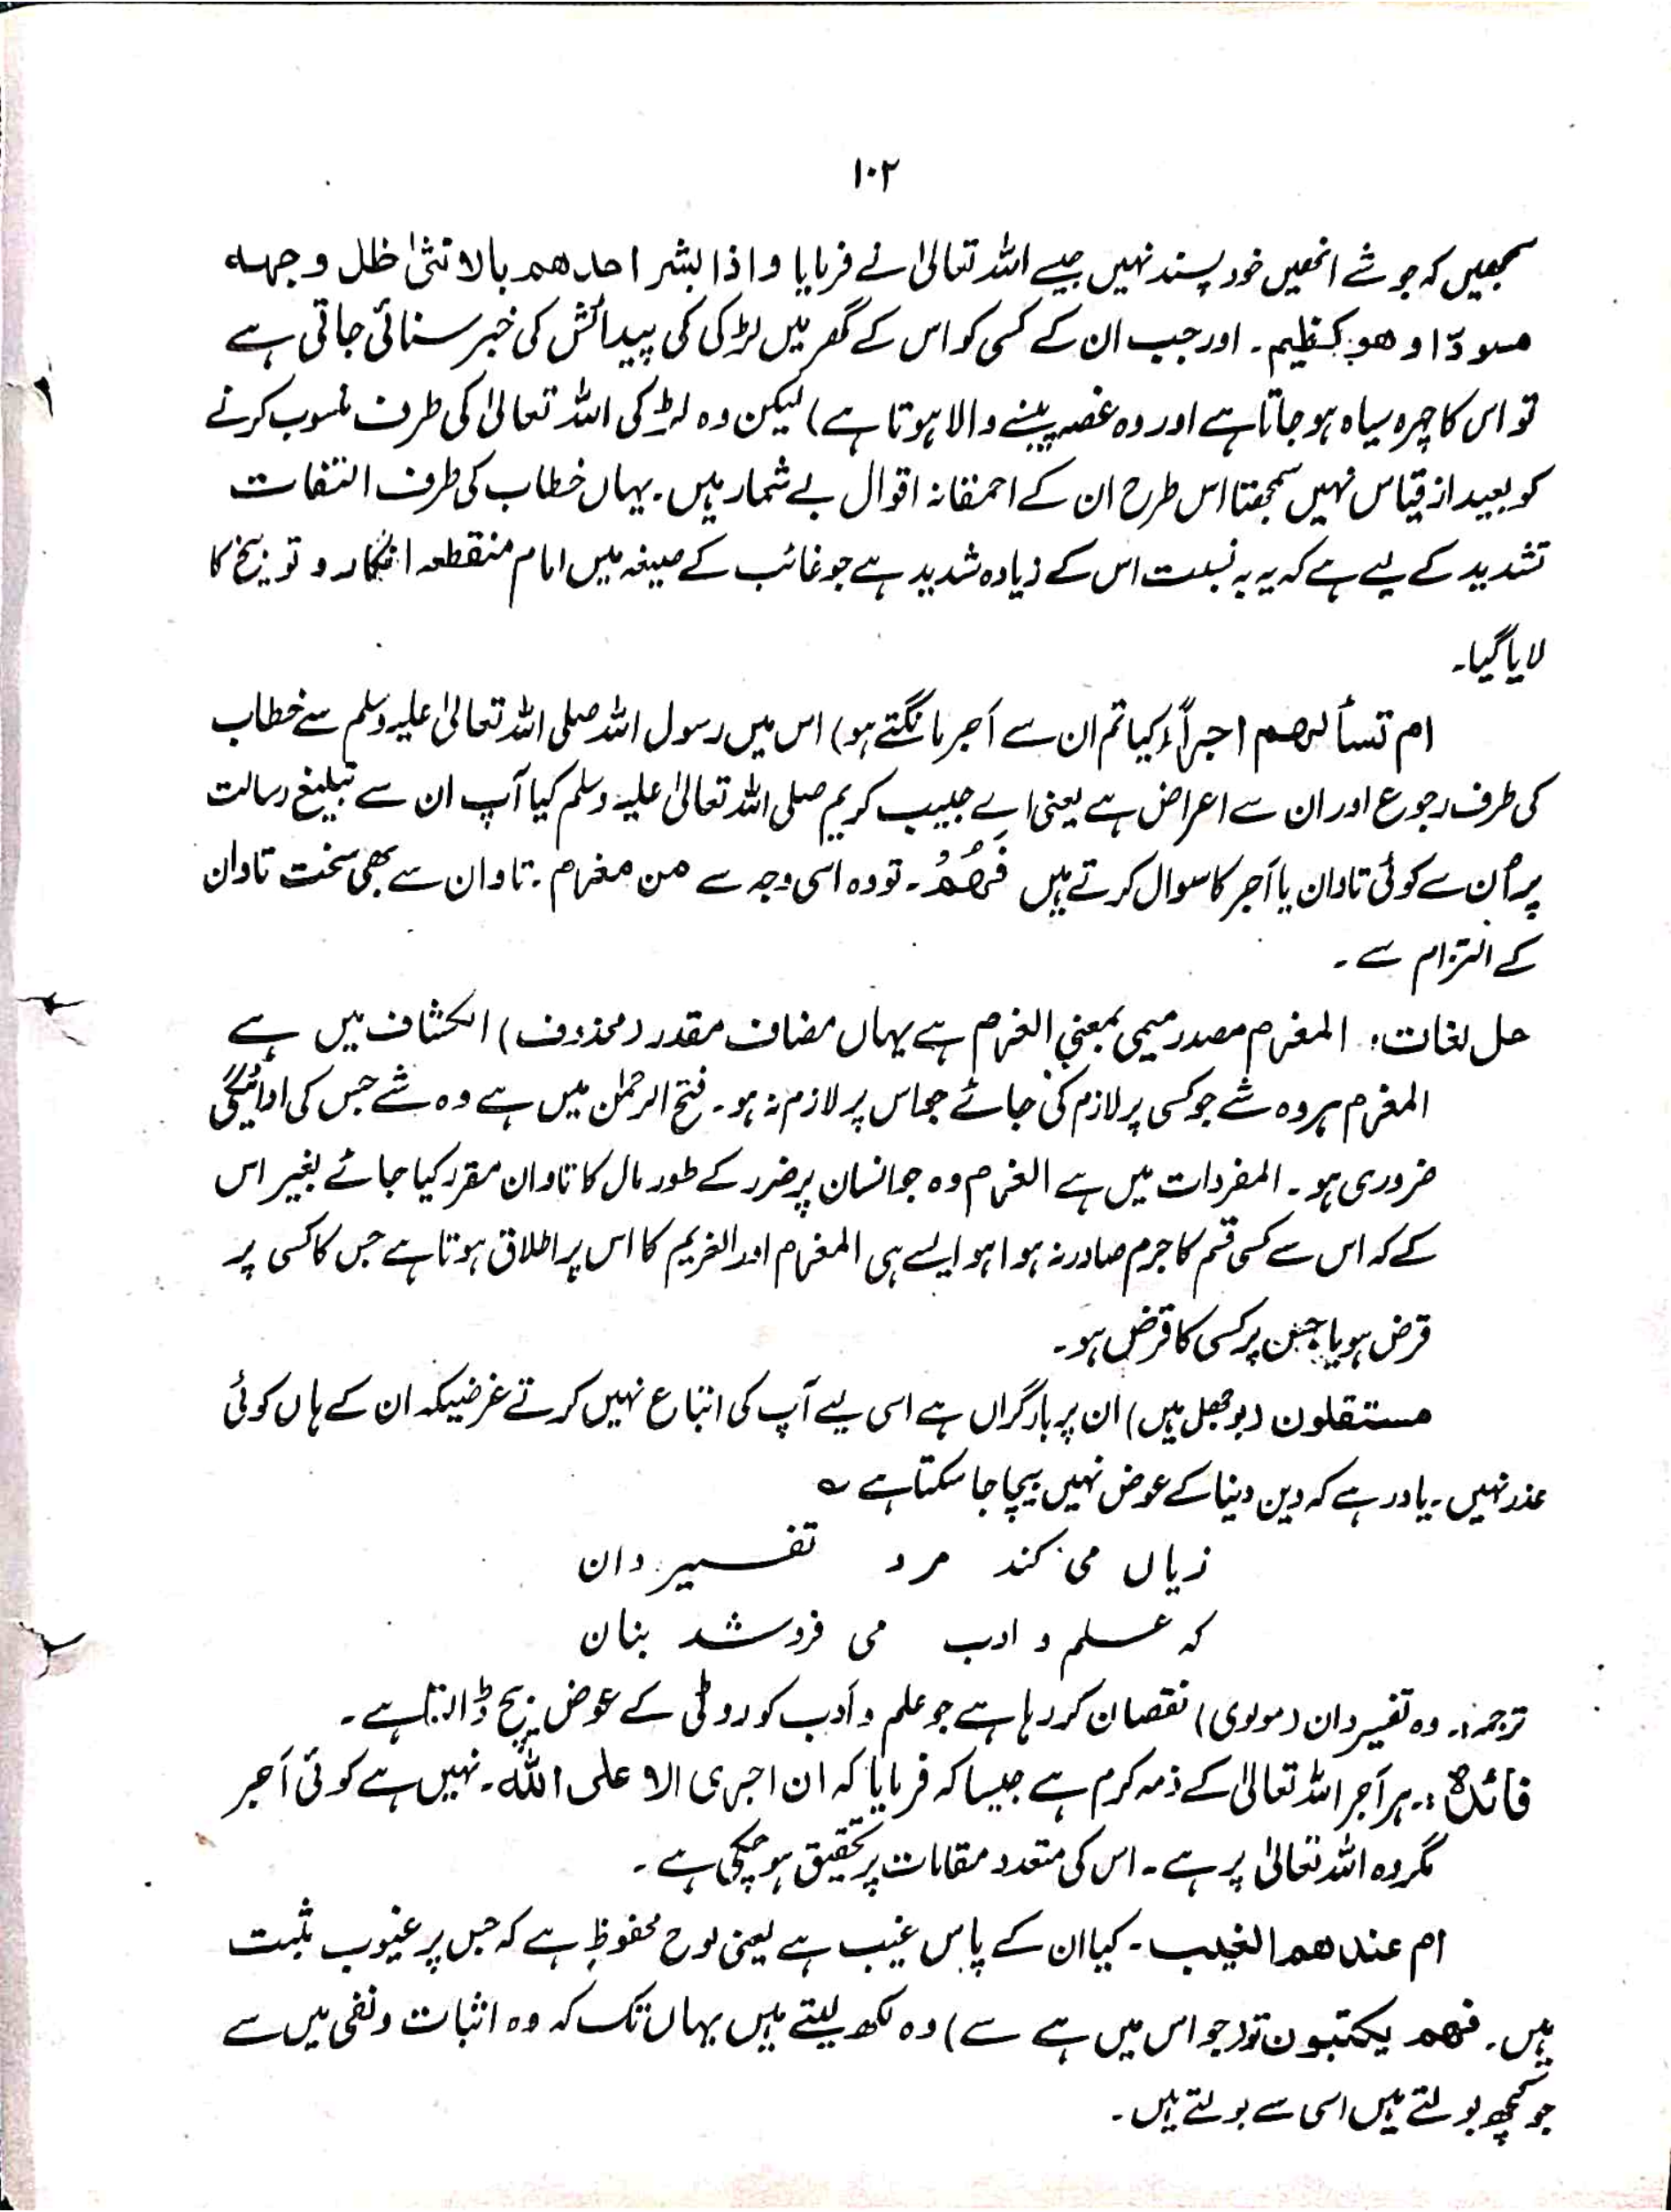 ۱۰۲
سمجھیں کہ جو شے انھیں خود پسند نہیں جیسے اللہ تعالیٰ نے فرمایا و اذا بشر احدھم بالانثیٰ ظل وجھہ
مسودّا وھو کظیم۔ اور جب ان کے کسی کو اس کے گھر میں لڑکی کی پیدائش کی خبر سنائی جاتی ہے
تو اس کا چہرہ سیاہ ہو جاتا ہے اور وہ غصہ پینے والا ہوتا ہے) لیکن وہ لڑکی اللہ تعالیٰ کی طرف منسوب کرنے
کو بعید از قیاس نہیں سمجھتا اس طرح ان کے احمقانہ اقوال بے شمار ہیں۔ یہاں خطاب کی طرف التفات
تشدید کے لیے ہے کہ یہ بہ نسبت اس کے زیادہ شدید ہے جو غائب کے صیغہ میں امام منقطعہ انکار و توبیخ کا
لایا گیا۔
ام تسألھم اجراً (کیا تم ان سے اَجر مانگتے ہو) اس میں رسول اللہ صلی اللہ تعالیٰ علیہ وسلم سے خطاب
کی طرف رجوع اور ان سے اعراض ہے یعنی اے حبیب کریم صلی اللہ تعالیٰ علیہ وسلم کیا آپ ان سے تبلیغ رسالت
پر اُن سے کوئی تاوان یا اَجر کا سوال کرتے ہیں فَھُمْ۔ تو وہ اسی وجہ سے من مغرم۔ تاوان سے بھی سخت تاوان
کے التزام سے۔
حل لغات:۔ المغرم مصدر میمی بمعنی الغرم ہے یہاں مضاف مقدر (محذوف) الکشاف میں ہے
المغرم ہر وہ شے جو کسی پر لازم کی جائے جو اس پر لازم نہ ہو۔ فتح الرحمٰن میں ہے وہ شے جس کی ادائیگی
ضروری ہو۔ المفردات میں ہے الغرم وہ جو انسان پر ضرر کے طور مال کا تاوان مقرر کیا جائے بغیر اس
کے کہ اس سے کسی قسم کا جرم صادر نہ ہوا ہو ایسے ہی المغرم اور الغریم کا اس پر اطلاق ہوتا ہے جس کا کسی پر
قرض ہو یا جس پر کسی کا قرض ہو۔
مستقلون (بوجھل ہیں) ان پر بار گراں ہے اسی لیے آپ کی اتباع نہیں کرتے غرضیکہ ان کے ہاں کوئی
عذر نہیں۔ یاد رہے کہ دین دنیا کے عوض نہیں بیچا جا سکتا ہے ؎
زیاں می کند مرد تفسیر دان
کہ علم و ادب می فروشد بنان
ترجمہ:۔ وہ تفسیر دان (مولوی) نقصان کر رہا ہے جو علم و اَدب کو روٹی کے عوض بیچ ڈالتا ہے۔
فائدہ:۔ ہر اَجر اللہ تعالیٰ کے ذمہ کرم ہے جیسا کہ فرمایا کہ ان اجری الا علی اللہ۔ نہیں ہے کوئی اَجر
مگر وہ اللہ تعالیٰ پر ہے۔ اس کی متعدد مقامات پر تحقیق ہو چکی ہے۔
ام عندھم الغیب۔ کیا ان کے پاس غیب ہے یعنی لوح محفوظ ہے کہ جس پر غیوب ثبت
ہیں۔ فھم یکتبون تو (جو اس میں ہے سے) وہ لکھ لیتے ہیں یہاں تک کہ وہ اثبات و نفی میں سے
جو کچھ بولتے ہیں اسی سے بولتے ہیں۔